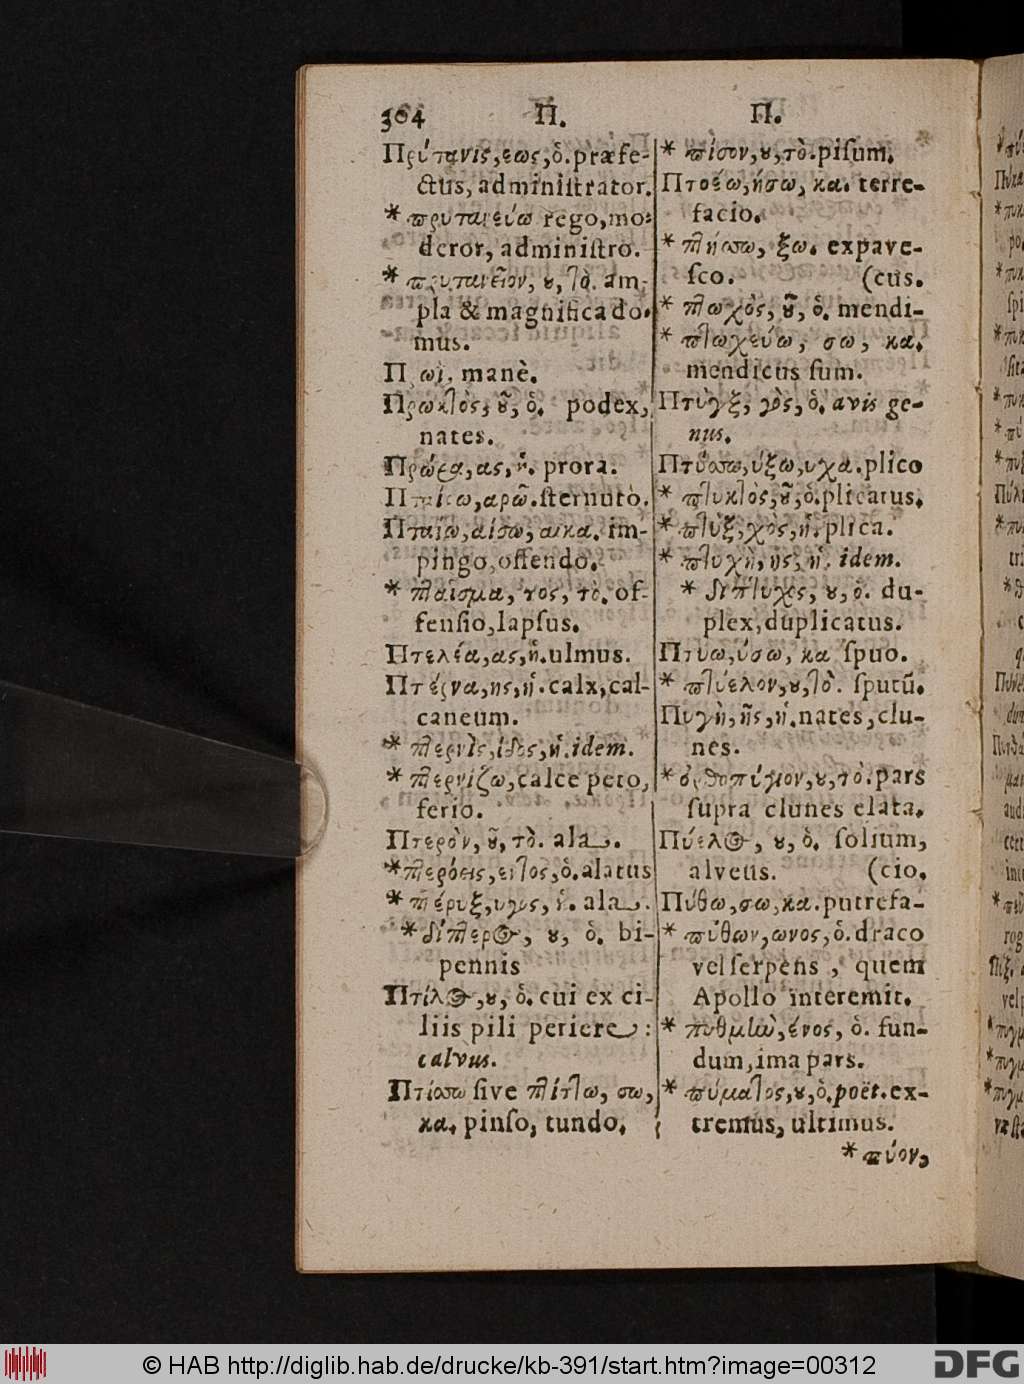 304 Π. Π.
Πρύτανις, εως, ὁ. præfe-
ctus, administrator.
* πρυτανεύω rego, mo-
deror, administro.
* πρυτανεῖον, ου, τὸ. am-
pla & magnifica do-
mus.
Πρωῒ, manè.
Πρωκτὸς, οῦ, ὁ. podex,
nates.
Πρώρα, ας, ἡ. prora.
Πταίρω, αρῶ. sternuto.
Πταίω, αίσω, αικα. im-
pingo, offendo.
* πταῖσμα, τος, τὸ. of-
fensio, lapsus.
Πτελέα, ας, ἡ. ulmus.
Πτέρνα, ης, ἡ. calx, cal-
caneum.
* πτερνὶς, ίδος, ἡ. idem.
* πτερνίζω, calce peto,
ferio.
Πτερὸν, οῦ, τὸ. ala.
* πτερόεις, εντος, ὁ. alatus
* πτέρυξ, υγος, ἡ. ala.
* δίπτερος, ου, ὁ. bi-
pennis
Πτίλος, ου, ὁ. cui ex ci-
liis pili periere:
calvus.
Πτίσσω sive πτίττω, σω,
κα. pinso, tundo.
* πίσον, ου, τὸ. pisum.
Πτοέω, ήσω, κα. terre-
facio.
* πτήσσω, ξω. expave-
sco. (cus.
* πτωχὸς, οῦ, ὁ. mendi-
* πτωχεύω, σω, κα.
mendicus sum.
Πτὺγξ, γὸς, ὁ. avis ge-
nus.
Πτύσσω, ύξω, υχα. plico
* πτυκτὸς, οῦ, ὁ. plicatus.
* πτὺξ, χὸς, ἡ. plica.
* πτυχὴ, ῆς, ἡ. idem.
* δίπτυχος, ου, ὁ. du-
plex, duplicatus.
Πτύω, ύσω, κα spuo.
* πτύελον, ου, τὸ. sputū.
Πυγὴ, ῆς, ἡ. nates, clu-
nes.
* ὀρθοπύγιον, ου, τὸ. pars
supra clunes elata.
Πύελος, ου, ὁ. solium,
alveus. (cio.
Πύθω, σω, κα. putrefa-
* πύθων, ωνος, ὁ. draco
vel serpens, quem
Apollo interemit.
* πυθμὴν, ένος, ὁ. fun-
dum, ima pars.
* πύματος, ου, ὁ. poët. ex-
tremus, ultimus.
* πύον,
© HAB http://diglib.hab.de/drucke/kb-391/start.htm?image=00312
DFG